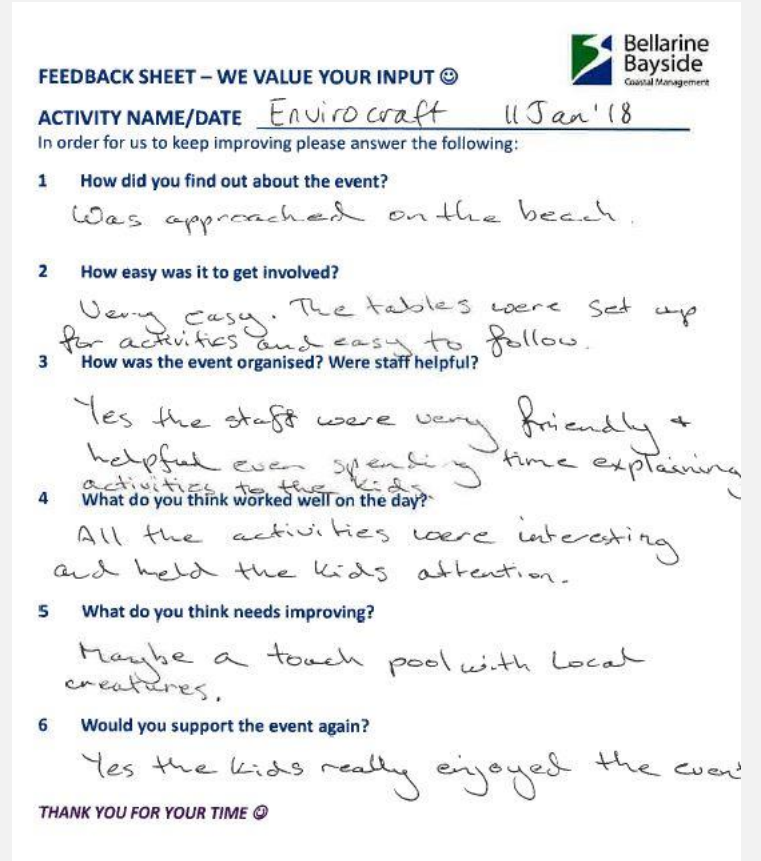 Bellarine
Bayside
Coastal Management
FEEDBACK SHEET – WE VALUE YOUR INPUT ☺
ACTIVITY NAME/DATE Envirocraft 11 Jan '18
In order for us to keep improving please answer the following:
1 How did you find out about the event?
Was approached on the beach.
2 How easy was it to get involved?
Very easy. The tables were set up
for activities and easy to follow.
3 How was the event organised? Were staff helpful?
Yes the staff were very friendly +
helpful even spending time explaining
activities to the kids
4 What do you think worked well on the day?
All the activities were interesting
and held the kids attention.
5 What do you think needs improving?
Maybe a touch pool with local
creatures.
6 Would you support the event again?
Yes the kids really enjoyed the event
THANK YOU FOR YOUR TIME ☺